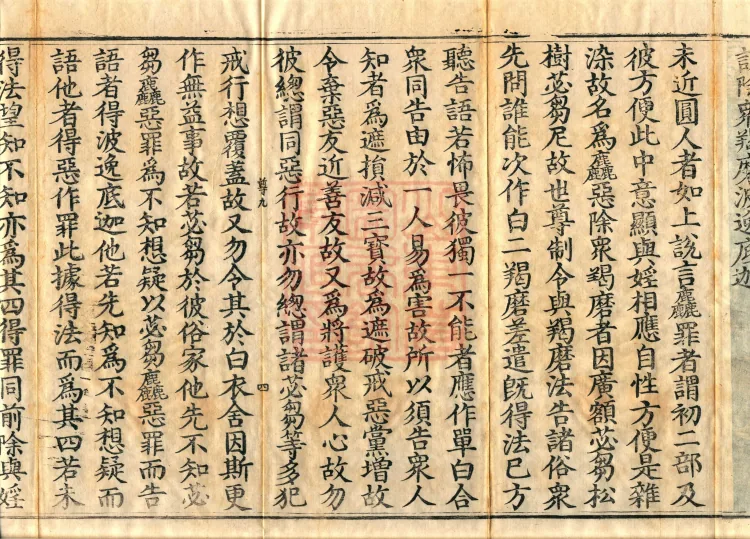 未近圓人者如上說言麤罪者謂初二部及
彼方便此中意顯與婬相應自性方便是雜
染故名為麤惡除衆羯磨者因廣額苾芻松
樹苾芻尼故也尊制令與羯磨法告諸俗衆
先問誰能次作白二羯磨差遣旣得法已方
聽告語若怖畏彼獨一不能者應作單白合
衆同告由於一人易爲害故所以須告衆人
知者爲遮損減三寶故爲遮破戒惡黨增故
令棄惡友近善友故又爲將護衆人心故勿
彼總謂同惡行故亦勿總謂諸苾芻等多犯
尊九
四
戒行想覆蓋故又勿令其於白衣舍因斯更
作無益事故若苾芻於彼俗家他先不知苾
芻麤惡罪爲不知想疑以苾芻麤惡罪而告
語者得波逸底迦他若先知爲不知想疑而
語他者得惡作罪此據得法而爲其四若未
得法望知不知亦爲其四得罪同前除與婬